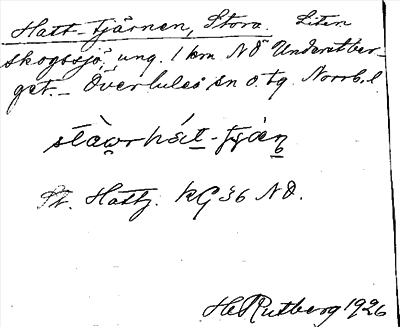 Hatt-tjärnen, Stora. Liten
skogssjö, ung. 1 km NÖ Underst ber-
get. - Överluleå sn o. tg. Norrb. l.
stàwrhát-tján
St. Hattj. KG 36 NO.
H. Rutberg 1926